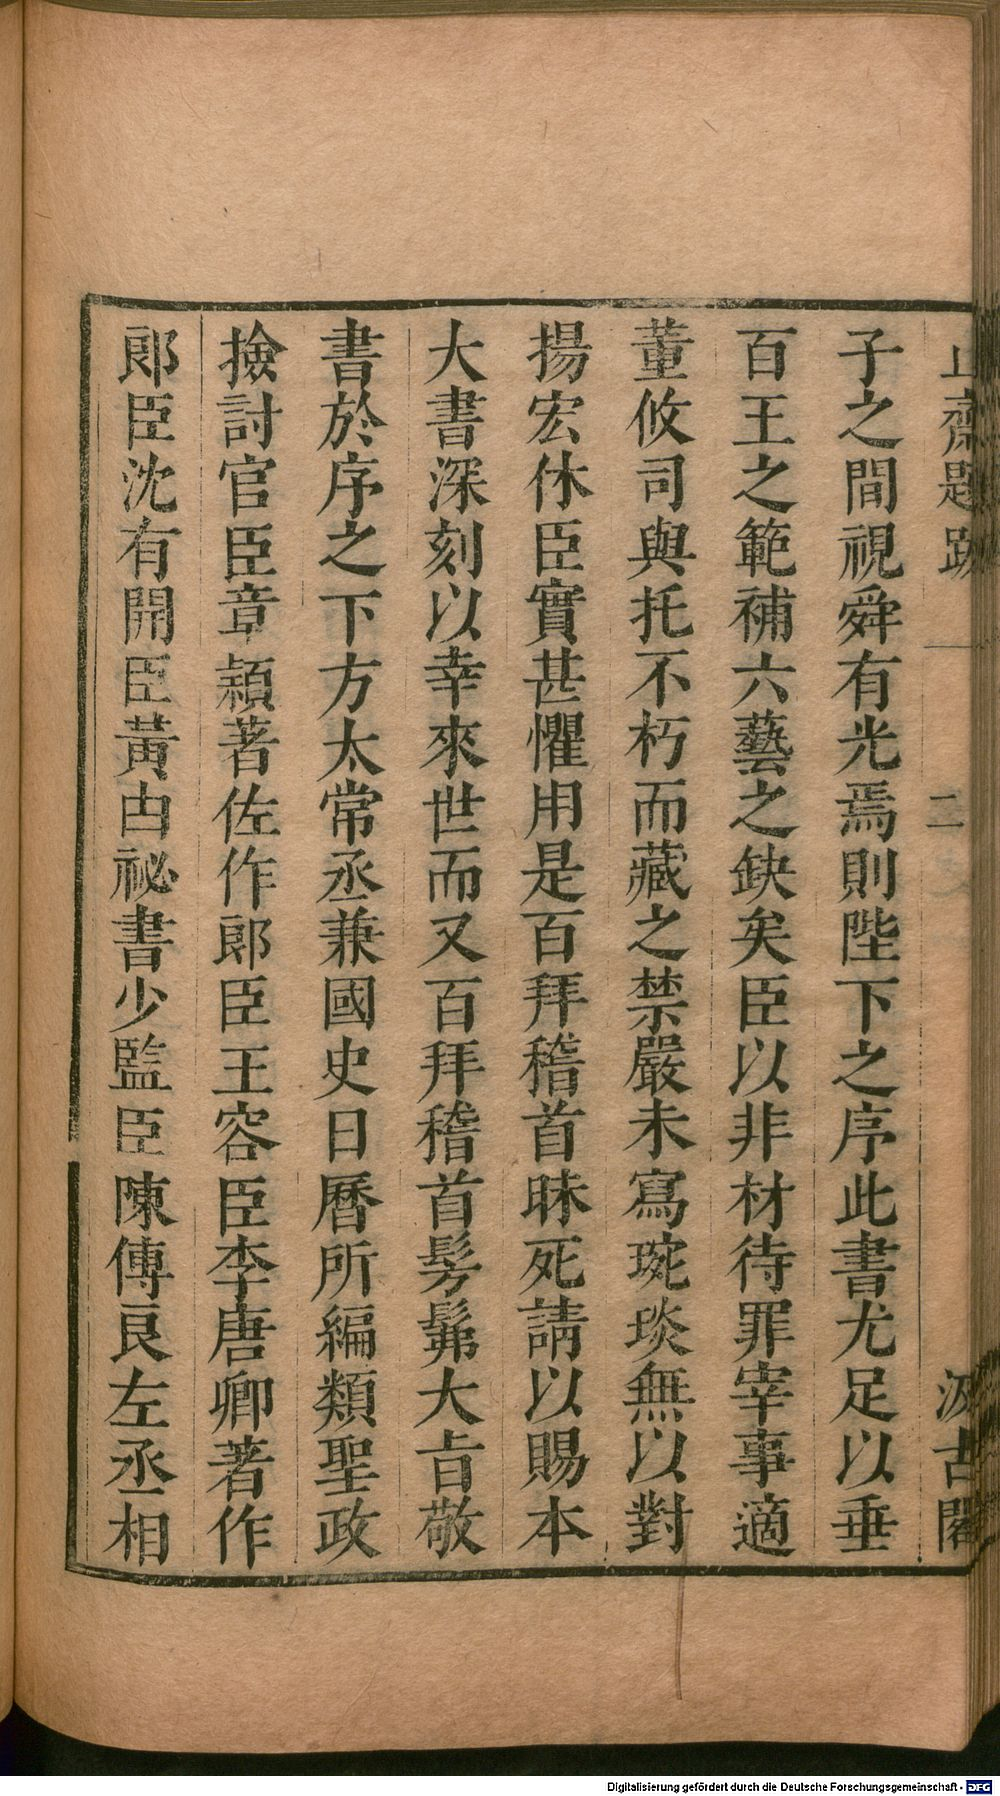 止齋題跋 二 汲古閣
子之間視舜有光焉則陛下之序此書尤足以垂
百王之範補六藝之缺矣臣以非材待罪宰事適
董攸司與托不朽而藏之禁嚴未寫琬琰無以對
揚宏休臣實甚懼用是百拜稽首昧死請以賜本
大書深刻以幸來世而又百拜稽首髣髴大㫖敬
書於序之下方太常丞兼國史日曆所編類聖政
撿討官臣章穎著佐作郎臣王容臣李唐卿著作
郎臣沈有開臣黃由祕書少監臣陳傅良左丞相
Digitalisierung gefördert durch die Deutsche Forschungsgemeinschaft - DFG